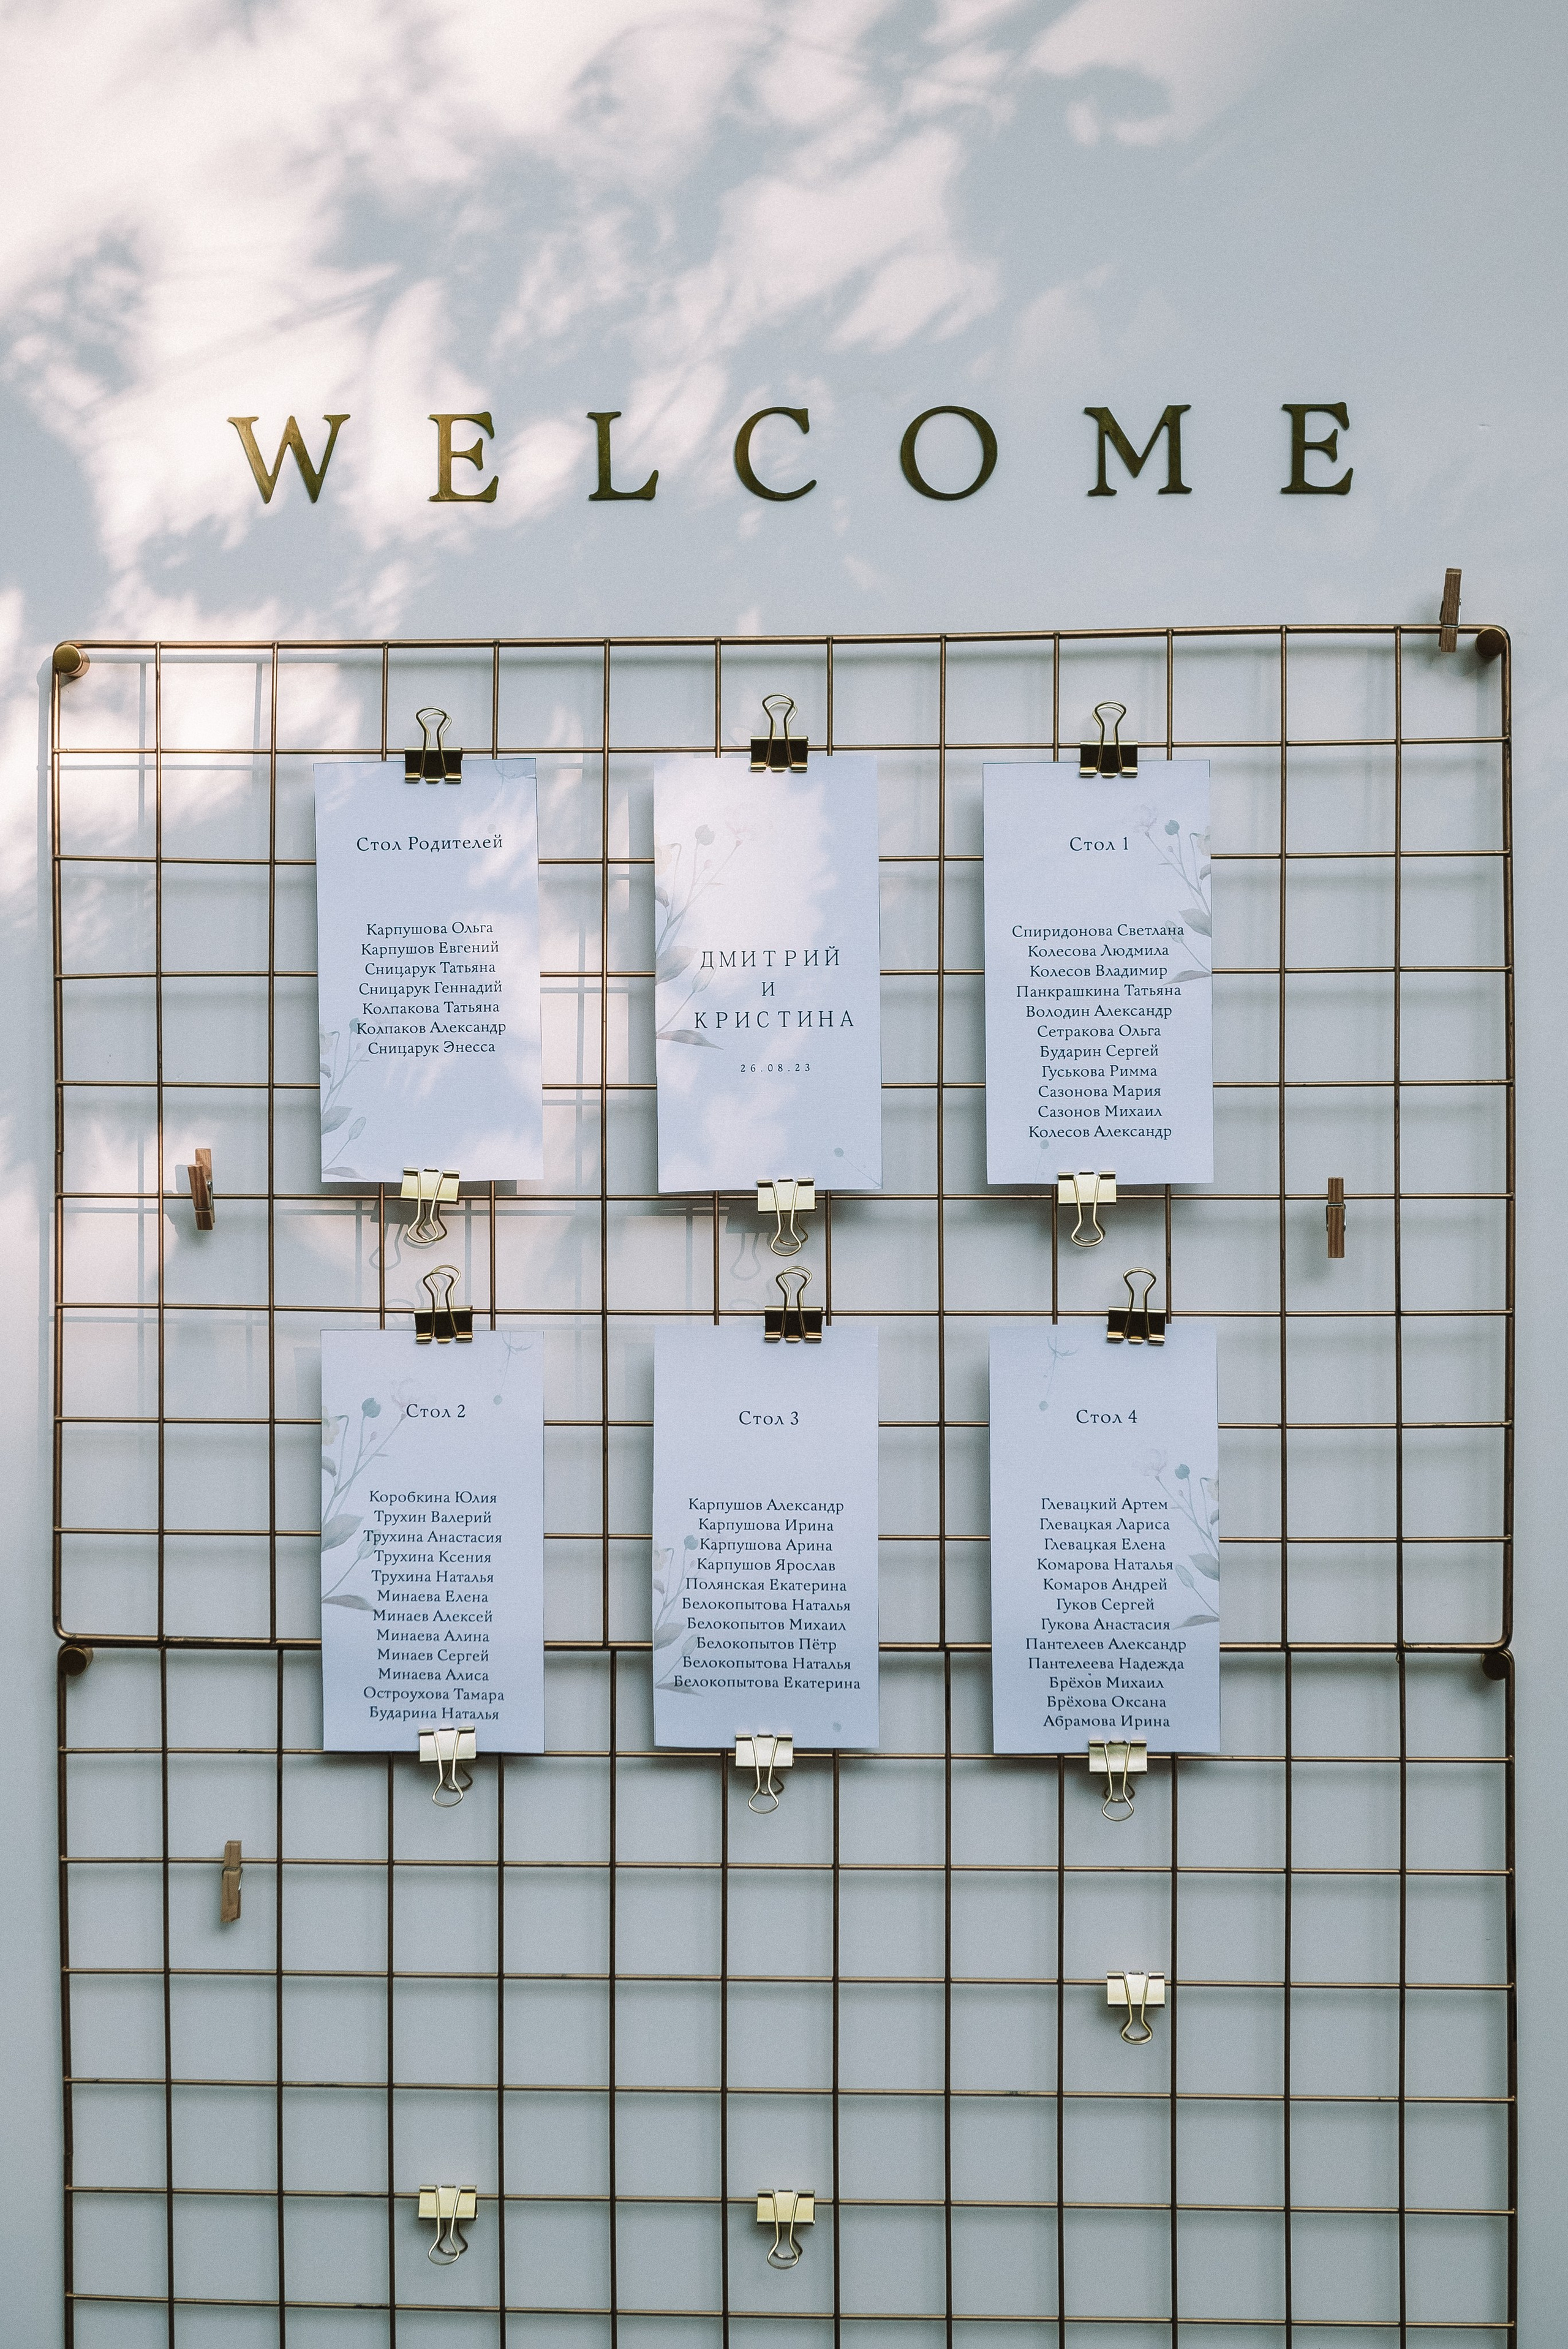 WELCOME
Стол Родителей
Карпушова Ольга
Карпушов Евгений
Сницарук Татьяна
Сницарук Геннадий
Колпакова Татьяна
Колпаков Александр
Сницарук Энесса
ДМИТРИЙ
И
КРИСТИНА
26.08.23
Стол 1
Спиридонова Светлана
Колесова Людмила
Колесов Владимир
Панкрашкина Татьяна
Володин Александр
Сетракова Ольга
Бударин Сергей
Гуськова Римма
Сазонова Мария
Сазонов Михаил
Колесов Александр
Стол 2
Коробкина Юлия
Трухин Валерий
Трухина Анастасия
Трухина Ксения
Трухина Наталья
Минаева Елена
Минаев Алексей
Минаева Алина
Минаев Сергей
Минаева Алиса
Остроухова Тамара
Бударина Наталья
Стол 3
Карпушов Александр
Карпушова Ирина
Карпушова Арина
Карпушов Ярослав
Полянская Екатерина
Белокопытова Наталья
Белокопытов Михаил
Белокопытов Пётр
Белокопытова Наталья
Белокопытова Екатерина
Стол 4
Глевацкий Артем
Глевацкая Лариса
Глевацкая Елена
Комарова Наталья
Комаров Андрей
Гуков Сергей
Гукова Анастасия
Пантелеев Александр
Пантелеева Надежда
Брёхов Михаил
Брёхова Оксана
Абрамова Ирина